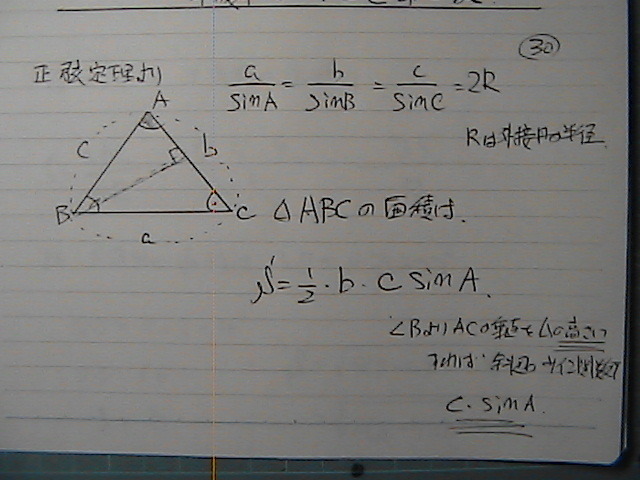 30
正弦定理より
a/sinA = b/sinB = c/sinC = 2R
Rは外接円の半径
A
c
b
B
C
a
△ABCの面積は.
S = 1/2・b・c sinA.
∠BよりACの垂直を△の高さに
すれば 斜辺の サイン関数で
c・sinA.